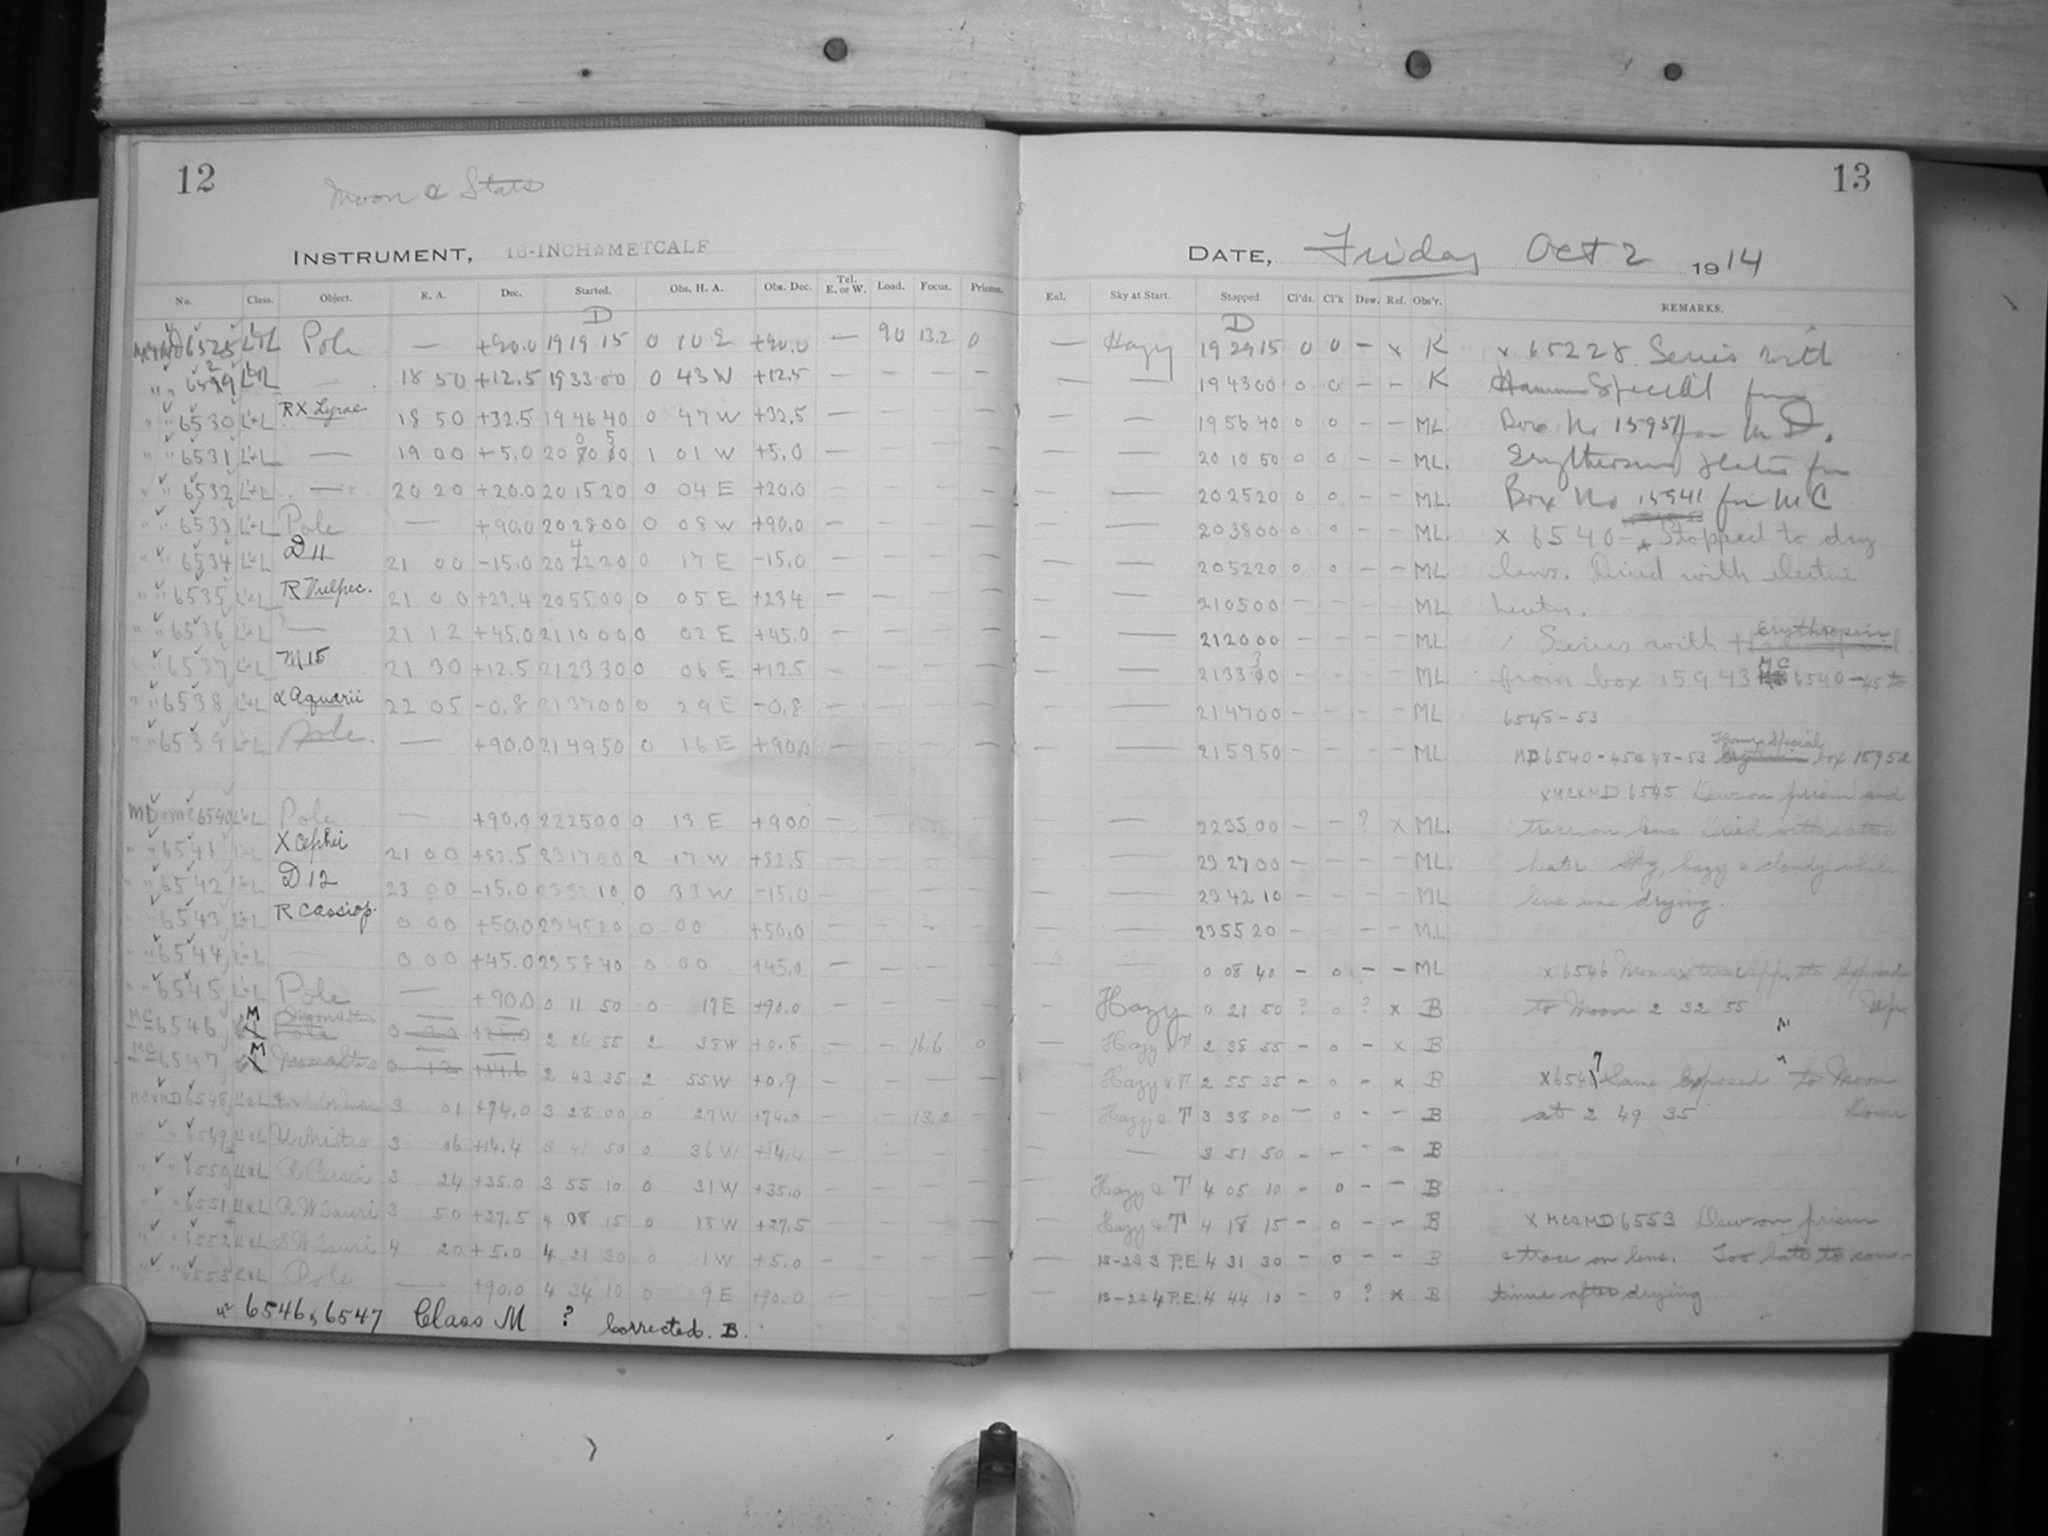 12
Moon & Stars
INSTRUMENT, 16-INCH METCALF
No. Class. Object. R. A. Dec. Started. Obs. H. A. Obs. Dec. Tel. E. or W. Load. Focus. Prisms.
D
6528 L+L Pole — +90.0 19 19 15 0 10 E +90.0 — 90 13.2 0
" " 6529 L+L — 18 50 +12.5 19 33 00 0 43 W +12.5 — — — —
" " 6530 L+L RX Lyrae 18 50 +32.5 19 46 40 0 47 W +32.5 — — — —
" " 6531 L+L — 19 00 +5.0 20 00 50 1 01 W +5.0 — — — —
" " 6532 L+L — 20 20 +20.0 20 15 20 0 04 E +20.0 — — — —
" " 6533 L+L Pole — +90.0 20 28 00 0 08 W +90.0 — — — —
" " 6534 L+L D11 21 00 -15.0 20 42 20 0 17 E -15.0 — — — —
" " 6535 L+L R Vulpec. 21 00 +23.4 20 55 00 0 05 E +23.4 — — — —
" " 6536 L+L — 21 12 +45.0 21 10 00 0 02 E +45.0 — — — —
" " 6537 L+L M15 21 30 +12.5 21 23 30 0 06 E +12.5 — — — —
" " 6538 L+L α Aquarii 22 05 -0.8 21 37 00 0 29 E -0.8 — — — —
" " 6539 L+L Pole. — +90.0 21 49 50 0 16 E +90.0 — — — —
MD+MC 6540 L+L Pole — +90.0 22 25 00 0 13 E +90.0 — — — —
" " 6541 L+L X Cephei 21 00 +82.5 23 17 00 2 17 W +82.5 — — — —
" " 6542 L+L D12 23 00 -15.0 23 32 10 0 33 W -15.0 — — — —
" " 6543 L+L R Cassiop. 0 00 +50.0 23 45 20 0 00 +50.0 — — — —
" " 6544 L+L — 0 00 +45.0 23 58 40 0 00 +45.0 — — — —
" " 6545 L+L Pole — +90.0 0 11 50 0 17 E +90.0 — — — —
MC 6546 M Pole 2 26 55 2 38 W +0.8 — — 16.6 0
MC 6547 M 2 43 35 2 55 W +0.9 — — — —
MC&MD 6548 L&L 3 01 +74.0 3 28 00 0 27 W +74.0 — — 13.2
" " 6549 L&L U Arietis 3 06 +14.4 3 41 50 0 36 W +14.4 — — — —
" " 6550 L&L R Persei 3 24 +35.0 3 55 10 0 31 W +35.0 — — — —
" " 6551 L&L RW Tauri 3 50 +27.5 4 08 15 0 18 W +27.5 — — — —
" " 6552 L&L Tauri 4 20 +5.0 4 21 30 0 1 W +5.0 — — — —
" " 6553 L&L Pole — +90.0 4 34 10 0 9 E +90.0 — — — —
6546, 6547 Class M ? Corrected. B.
13
DATE, Friday Oct 2 1914
Eul. Sky at Start. Stopped Cl'ds. Cl'k Dew. Ref. Obs'r. REMARKS.
D
— Hazy 19 29 15 0 0 — x K x 6522 8 Series with
— — 19 43 00 0 0 — — K Special from
— 19 56 40 0 0 — — ML Box No 15951 for MD.
— — 20 10 50 0 0 — — ML. Erythrosin plates from
— — 20 25 20 0 0 — — ML. Box No 15941 for MC
— — 20 38 00 0 0 — — ML. x 6540 — Stopped to dry
— — 20 52 20 0 0 — — ML. lens. Dried with electric
— — 21 05 00 — — — — ML heater.
— — 21 20 00 — — — — ML Series with erythrosin
— — 21 33 30 — — — — ML from box 15943 MC 6540-45 &
— — 21 47 00 — — — — ML 6548-53
— — 21 59 50 — — — — ML MD 6540-45 & 48-53 Special box 15952
x MC&MD 6545 Dew on prism and
— — 22 35 00 — — ? x ML. trace on lens. Dried with
— — 23 27 00 — — — — ML. heater. Sky, hazy & cloudy while
— — 23 42 10 — — — — ML lens was drying.
— — 23 55 20 — — — — ML
— 0 08 40 — 0 — — ML x 6546 Moon exposed
— Hazy 0 21 50 ? 0 ? x B to Moon 2 32 55
— Hazy & T 2 38 55 — 0 — x B
Hazy & T 2 55 35 — 0 — x B x 6547 Same exposed to Moon
Hazy & T 3 38 00 — 0 — — B at 2 49 35 Down
— 3 51 50 — — — — B
Hazy & T 4 05 10 — 0 — — B
— Hazy & T 4 18 15 — 0 — — B x MC&MD 6553 Dew on prism
— 18-28 3 P.E. 4 31 30 — 0 — — B & trace on lens. Too late to con-
— 18-22 4 P.E. 4 44 10 — 0 ? x B tinue after drying